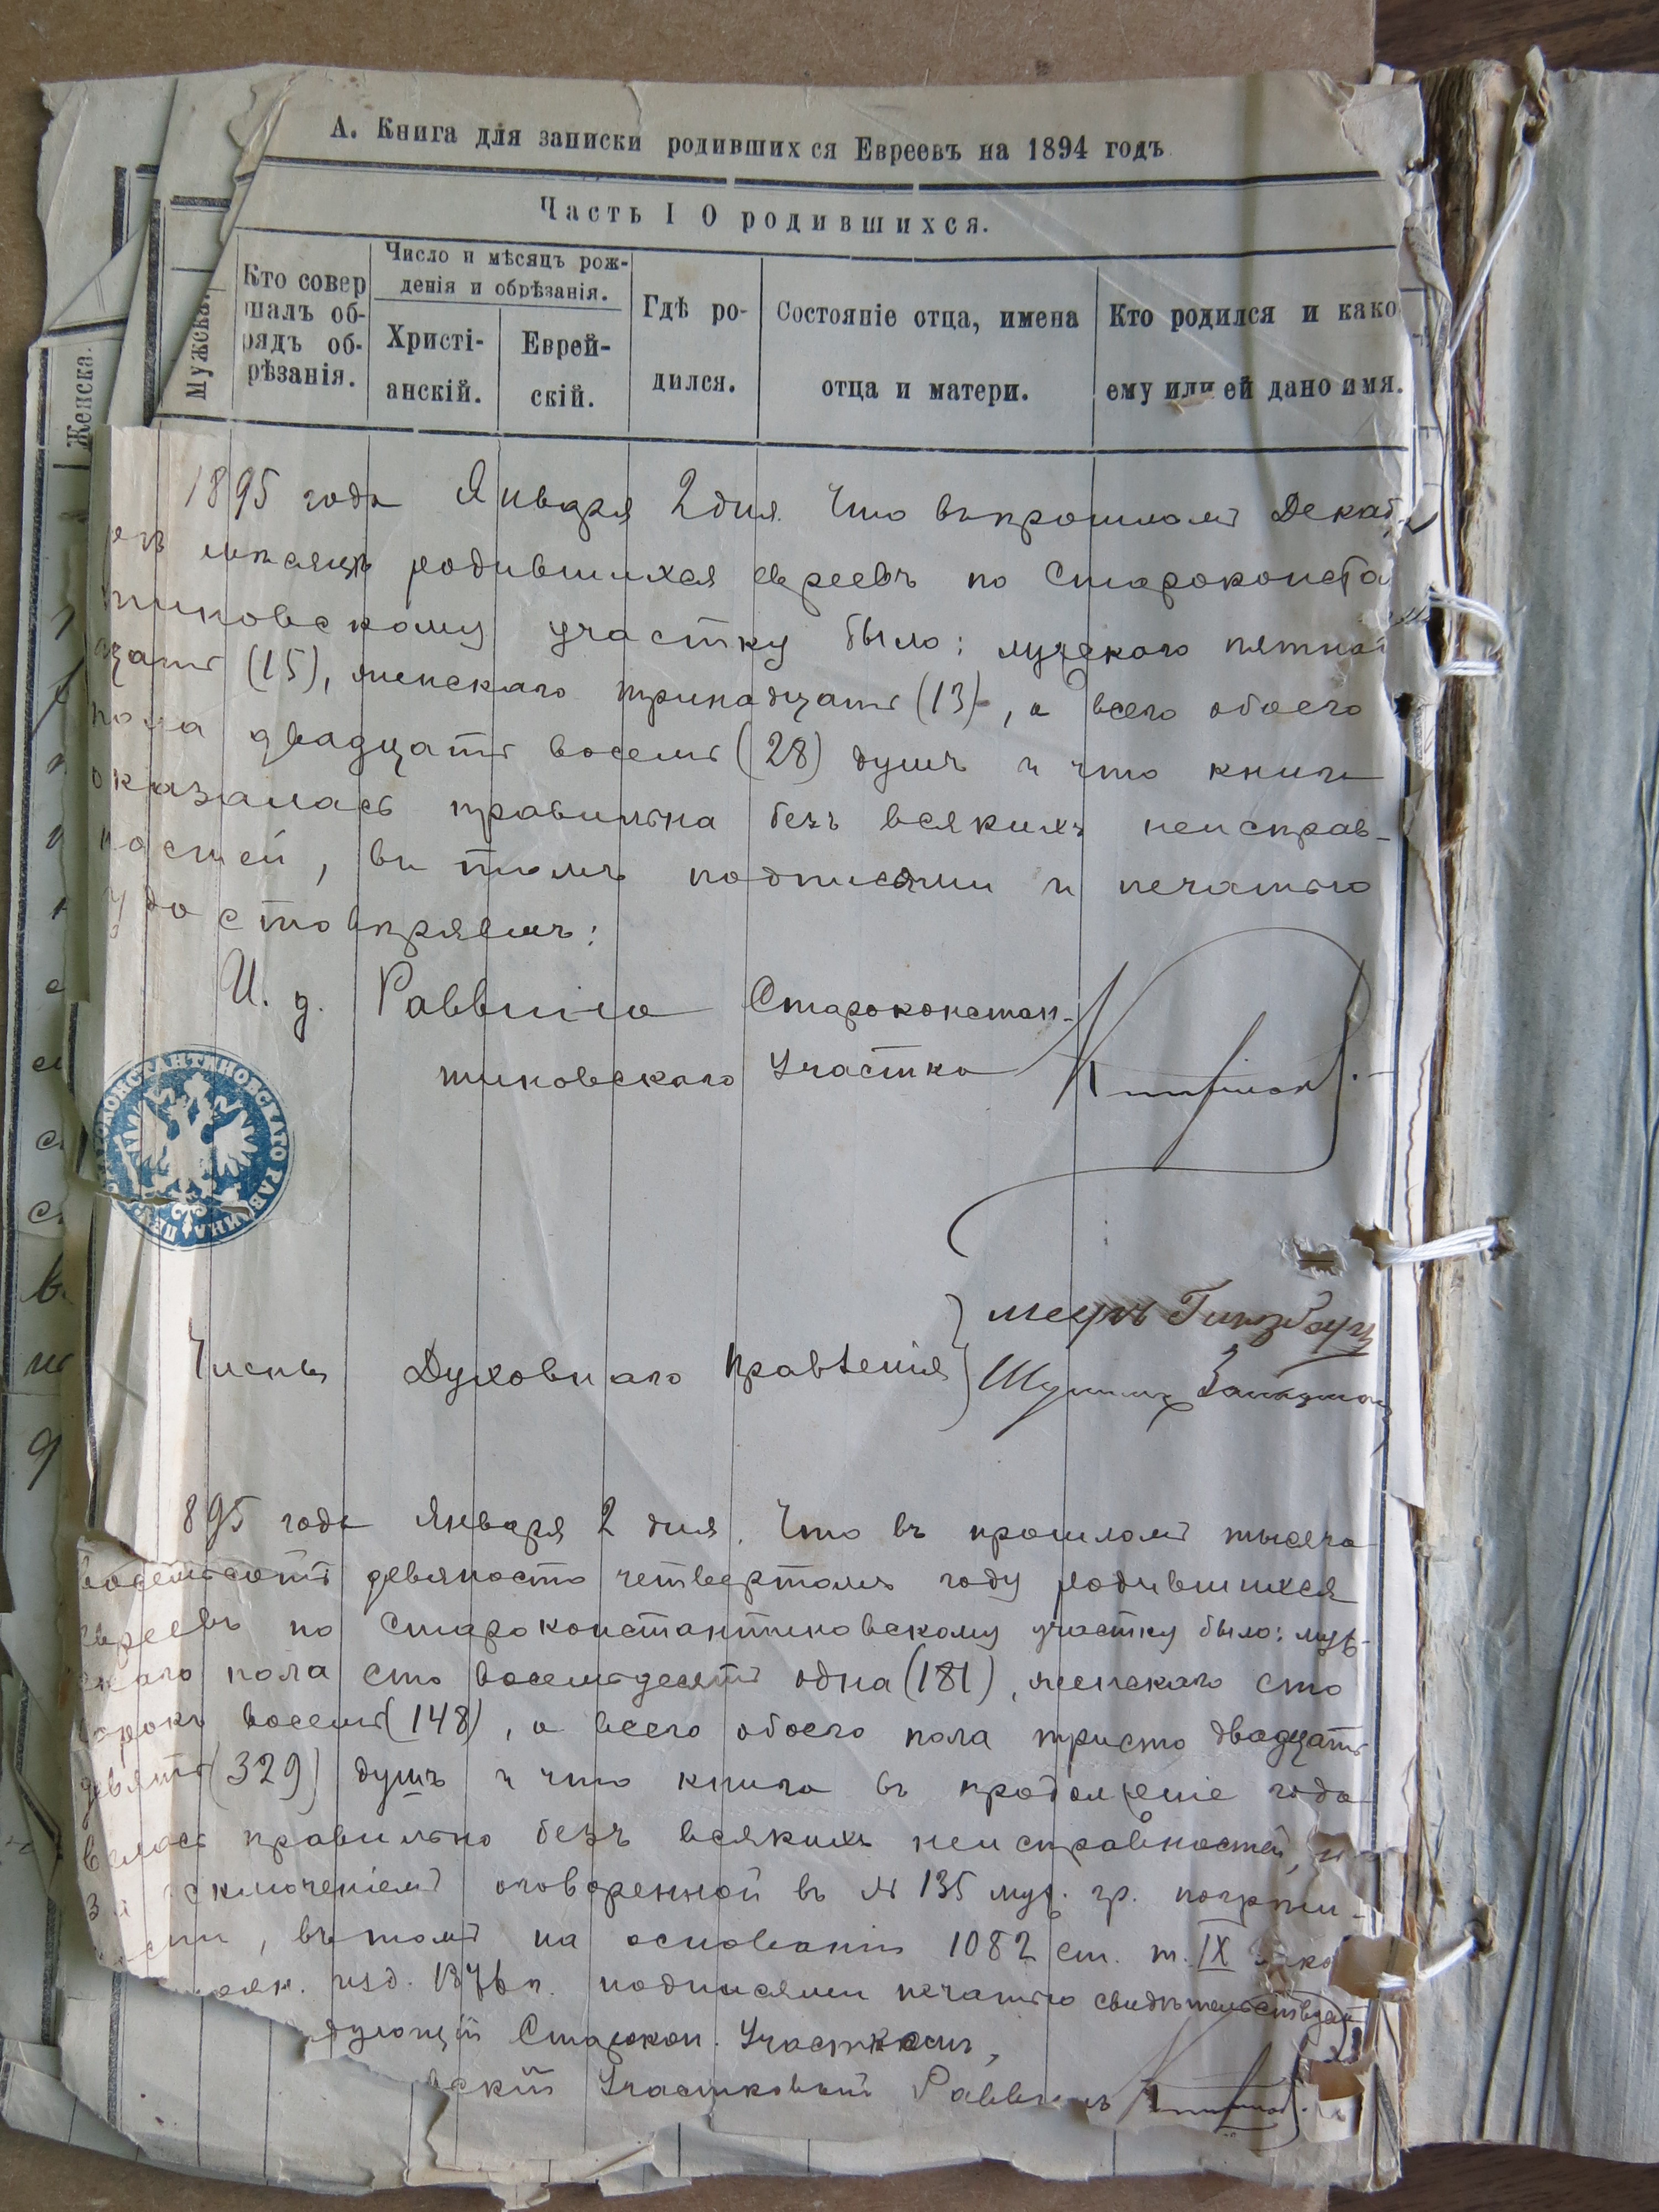 А. Книга для записки родившихся Евреевъ на 1894 годъ
Часть I О родившихся.
Женска.
Мужска.
Кто совер
шалъ об-
рядъ об-
рѣзанія.
Число и мѣсяцъ рож-
денія и обрѣзанія.
Христі-
анскій.
Еврей-
скій.
Гдѣ ро-
дился.
Состояніе отца, имена
отца и матери.
Кто родился и како
ему или ей дано имя.
1895 года Января 2 дня Что въ прошломъ Декаб
рѣ мѣсяцѣ родившихся евреевъ по Староконста
тиновскому участку было: мужскаго пятнад
цать (15), женскаго тринадцать (13), а всего обоего
пола двадцать восемь (28) душъ и что книга
оказалась правильна безъ всякихъ неисправ-
ностей, въ томъ подписями и печатью
удостовѣряемъ:
И. д. Раввина Староконстан-
тиновскаго Участка
СТАРОКОНСТАНТИНОВСКАГО РАВВИНА
Члены Духовнаго Правленія
Шулимъ
895 года Января 2 дня. Что въ прошломъ тысяча
восемьсотъ девяносто четвертомъ году родившихся
евреевъ по Староконстантиновскому участку было: муж-
скаго пола сто восемьдесятъ одна (181), женскаго сто
сорокъ восемь (148), а всего обоего пола триста двадцать
девять (329) душъ и что книга въ продолженіе года
велась правильно безъ всякихъ неисправностей,
за исключеніемъ оговоренной въ № 135 муж. гр. погрѣш-
ности, въ томъ на основаніи 1082 ст. т. IX
изд. 1876 г. подписями печатью свидѣтельствуемъ
дующій Старокон. Участкомъ,
вскій Участковый Раввинъ